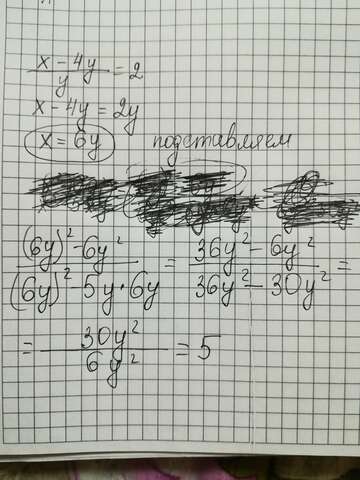 (x - 4y)/y = 2
x - 4y = 2y
x = 6y подставляем
((6y)² - 6y²)/((6y)² - 5y · 6y) = (36y² - 6y²)/(36y² - 30y²) =
= 30y²/6y² = 5